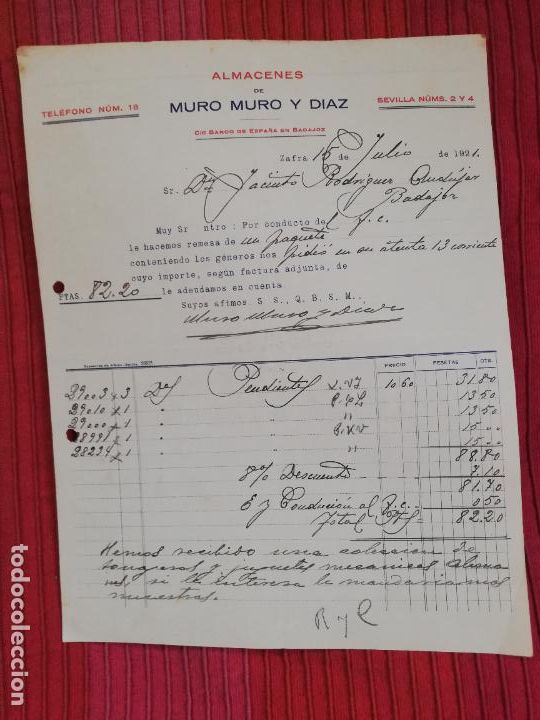 ALMACENES
DE
MURO MURO Y DIAZ
TELÉFONO NÚM. 18
SEVILLA NÚMS. 2 Y 4
C/C BANCO DE ESPAÑA EN BADAJOZ
Zafra 15 de Julio de 1921.
Sr. Dn Jacinto Rodriguez Andújar
Badajoz
Muy Sr ntro : Por conducto del f. c.
le hacemos remesa de un paquete
conteniendo los géneros nos pidió en su atenta 13 corriente
cuyo importe, según factura adjunta, de
PTAS. 82.20 le adeudamos en cuenta
Suyos afimos. S. S., Q. B. S. M.,
Muro Muro y Diaz
PRECIO PESETAS CTS.
29003 x 3 Pendientes 10.60 31.80
29010 x 1 " " 13.50
29000 x 1 " " 13.50
28991 x 1 " " 15 ..
28234 x 1 " " 15 ..
88.80
8% Descuento 7.10
81.70
E y Conducion al f.c. 0.50
Total Pts = 82.20
Hemos recibido una coleccion de
y juguetes mecanicos alema
nes, si le interesa le mandariamos
muestras.
R y C
todocoleccion